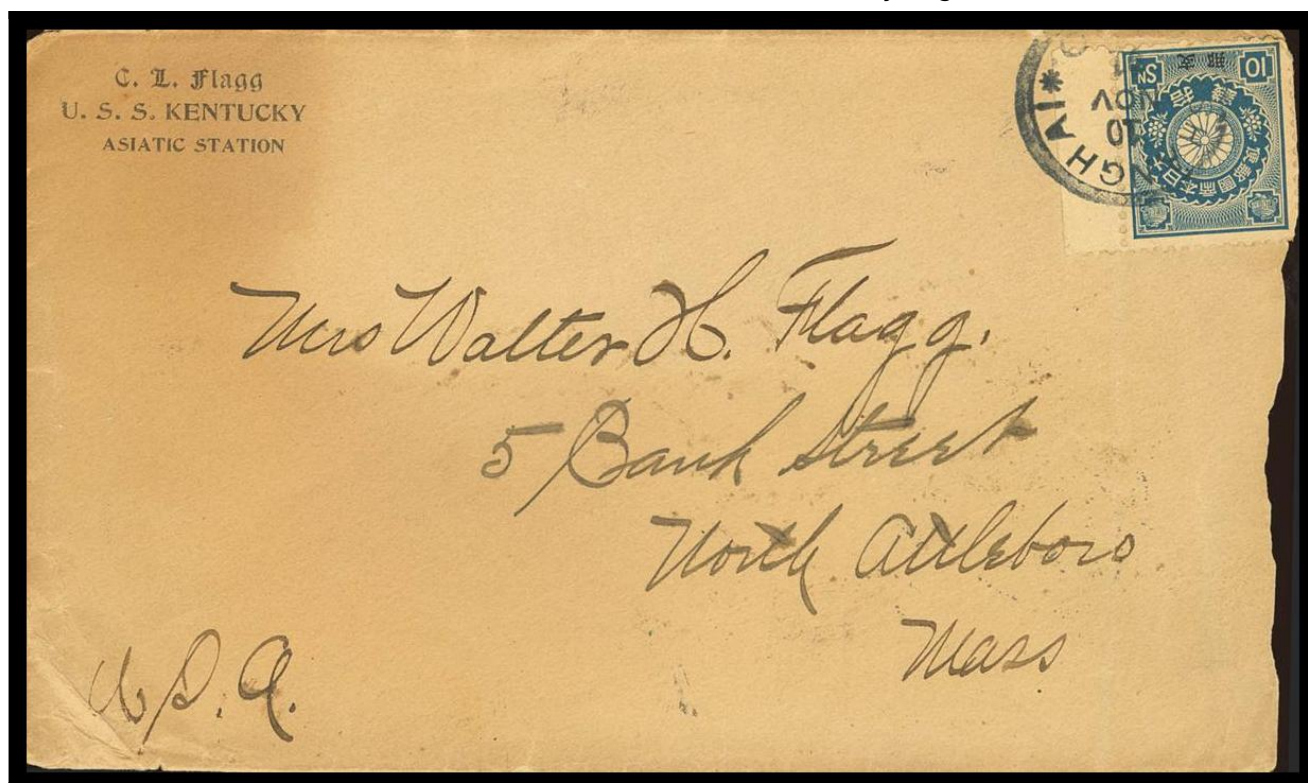 C. L. Flagg
U. S. S. KENTUCKY
ASIATIC STATION
10 SN
支那
拾錢
大日本帝國郵便
NOV
10
Mrs Walter H. Flagg.
5 Bank Street
North Attleboro
Mass
U.S.A.